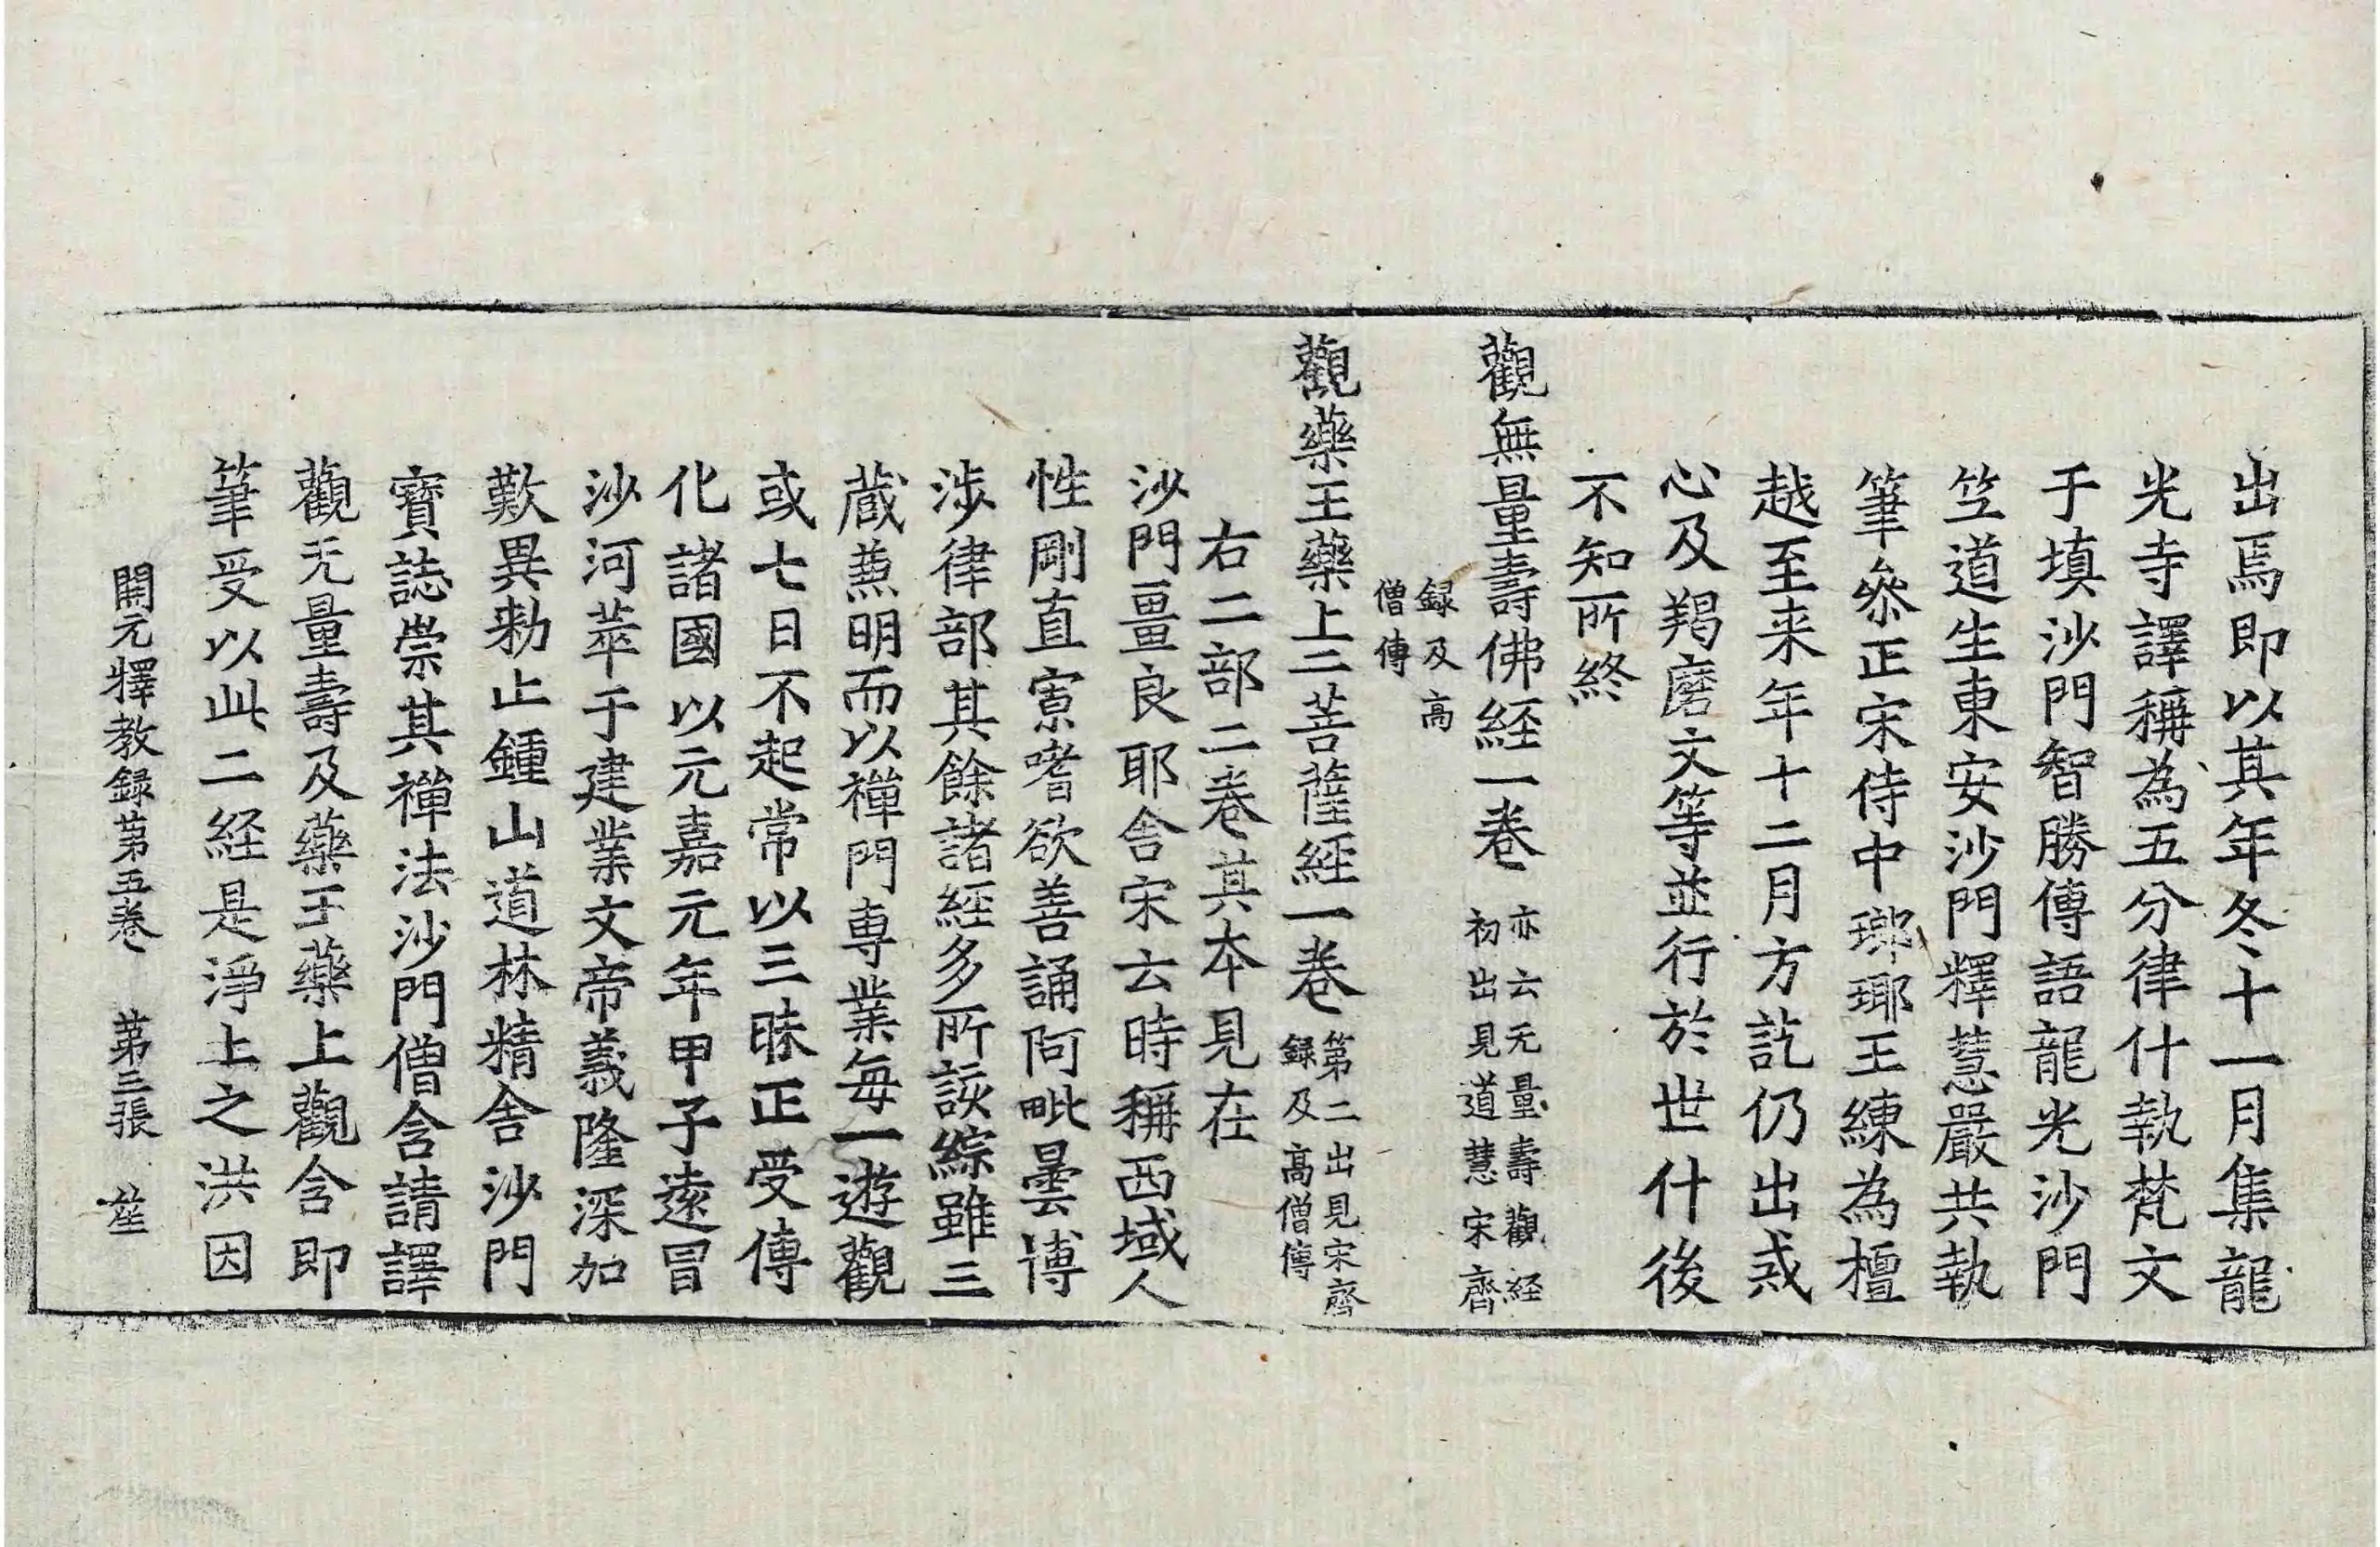 出焉即以其年冬十一月集龍
光寺譯稱為五分律什執梵文
于填沙門智勝傳語龍光沙門
笁道生東安沙門釋慧嚴共執
筆叅正宋侍中瑯瑘王練為檀
越至来年十二月方訖仍出戒
心及羯磨文等並行於世什後
不知所終
觀無量壽佛経一卷
亦云无量壽觀経
初出見道慧宋齊
録及高
僧傳
觀藥王藥上二菩薩経一卷
第二出見宋齊
録及高僧傳
右二部二卷其本見在
沙門畺良耶舎宋云時稱西域人
性剛直寡嗜欲善誦阿毗曇博
涉律部其餘諸経多所該綜雖三
蔵𠔥明而以禪門専業每一遊觀
或七日不起常以三昧正受傳
化諸國以元嘉元年甲子逺冒
沙河萃于建業文帝義隆深加
歎異勑止鍾山道林精舎沙門
寶誌崇其禪法沙門僧含請譯
觀无量壽及藥王藥上觀含即
筆受以此二経是淨土之洪因
開元釋教録苐五卷 苐三張